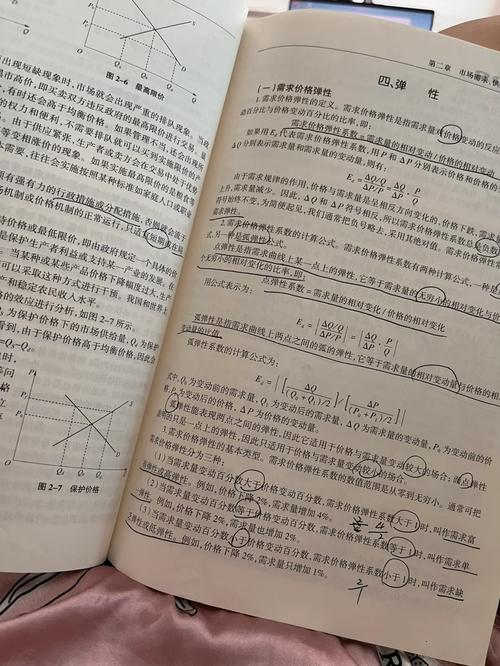 图 2-6 最高限价
出现短缺现象时,市场就会出现严重的排队现象。当政
市商价,即买卖双方违反政府的最高限价进行交易。最
,有时还会高于均衡价格。如果管理不当,还会出现
的权力和便利,不需要排队就可以买到实施限价的
。由于供应紧张,生产者或卖方会在交易中处于优势
等变相涨价的现象。如果实施最高限价的是粮食等
本需要,往往会实施按照某种标准如家庭人口或职业
有强有力的行政措施或分配措施,否则就会流于
场机制或价格机制的正常运行,只适宜短期或在局
持价格或最低限价,即由政府规定一个具体的价
是保护生产者利益或支持某一产业的发展。在
。当某种或某些产品价格下降幅度过大,生产
可以采取这种方式进行干预。我国和世界上
产和稳定农民收入水平。
的效应进行分析,如图 2-7 所示。
为保护价格下的市场供给量,Q₀为保
得到,由于保护价格高于均衡价格,因此会
图 2-7 保护价格
第二章 市场需求、供
四、弹 性
(一)需求价格弹性
1.需求价格弹性的定义。需求价格弹性是指需求量对价格变动的反应
动百分比与价格变动百分比的比率,即:
需求价格弹性系数=需求量的相对变动/价格的相对变动
如果用 E_d 代表需求价格弹性系数,用 P 和 ΔP 分别表示价格和价格的
ΔQ 分别表示需求量和需求量的变动量,则有:
E_d = (ΔQ/Q)/(ΔP/P) = ΔQ/ΔP · P/Q
由于需求规律的作用,价格与需求量是呈相反方向变化的,价格下跌,需求量
上升,需求量减少。因此,ΔQ 和 ΔP 符号相反,所以需求价格弹性系数总是负数
符号始终不变,为简便起见,我们通常把负号略去,采用其绝对值。
需求弹性。
2.需求价格弹性系数的计算公式。需求价格弹性系数有两种计算公式,一种是点
式,另一种是弧弹性公式。
点弹性是指需求曲线上某一点上的弹性,它等于需求量的无穷小的相对变化与价
个无穷小的相对变化的比率,即:
点弹性系数=需求量的相对变化/价格的相对变化
用公式表示为:
E_d = |(ΔQ/Q)/(ΔP/P)| = |ΔQ/ΔP · P/Q|
弧弹性是指需求曲线上两点之间的弧的弹性,它等于需求量的相对变动量与价格的相
变动量的比值。
弧弹性系数的计算公式为:
E_d = |[ΔQ/(Q₀+Q₁)/2]/[ΔP/(P₀+P₁)/2]|
式中,Q₀为变动前的需求量,Q₁为变动后的需求量,ΔQ 为需求量的变动量,P₀为变动前的价
格,P₁为变动后的价格,ΔP 为价格的变动量。
弧弹性能表现两点之间的弹性,因此它适用于价格与需求量变动较大的场合;而点弹性
表明的只是一点上的弹性,因此只适用于价格与需求量变动较小的场合。
3.需求价格弹性的基本类型。需求价格弹性系数的数值范围是从零到无穷小。通常可把
需求价格弹性分为三种。
(1)当需求量变动百分数大于价格变动百分数,需求价格弹性系数大于 1 时,叫作需求富
有弹性或高弹性。例如,价格下降 2%,需求量增加 4%。
(2)当需求量变动百分数等于价格变动百分数,需求价格弹性系数等于 1 时,叫作需求单
一弹性。例如,价格下降 2%,需求量也增加 2%。
(3)当需求量变动百分数小于价格变动百分数,需求价格弹性系数小于 1 时,叫作需求缺
乏弹性或低弹性。例如,价格下降 2%,需求量只增加 1%。